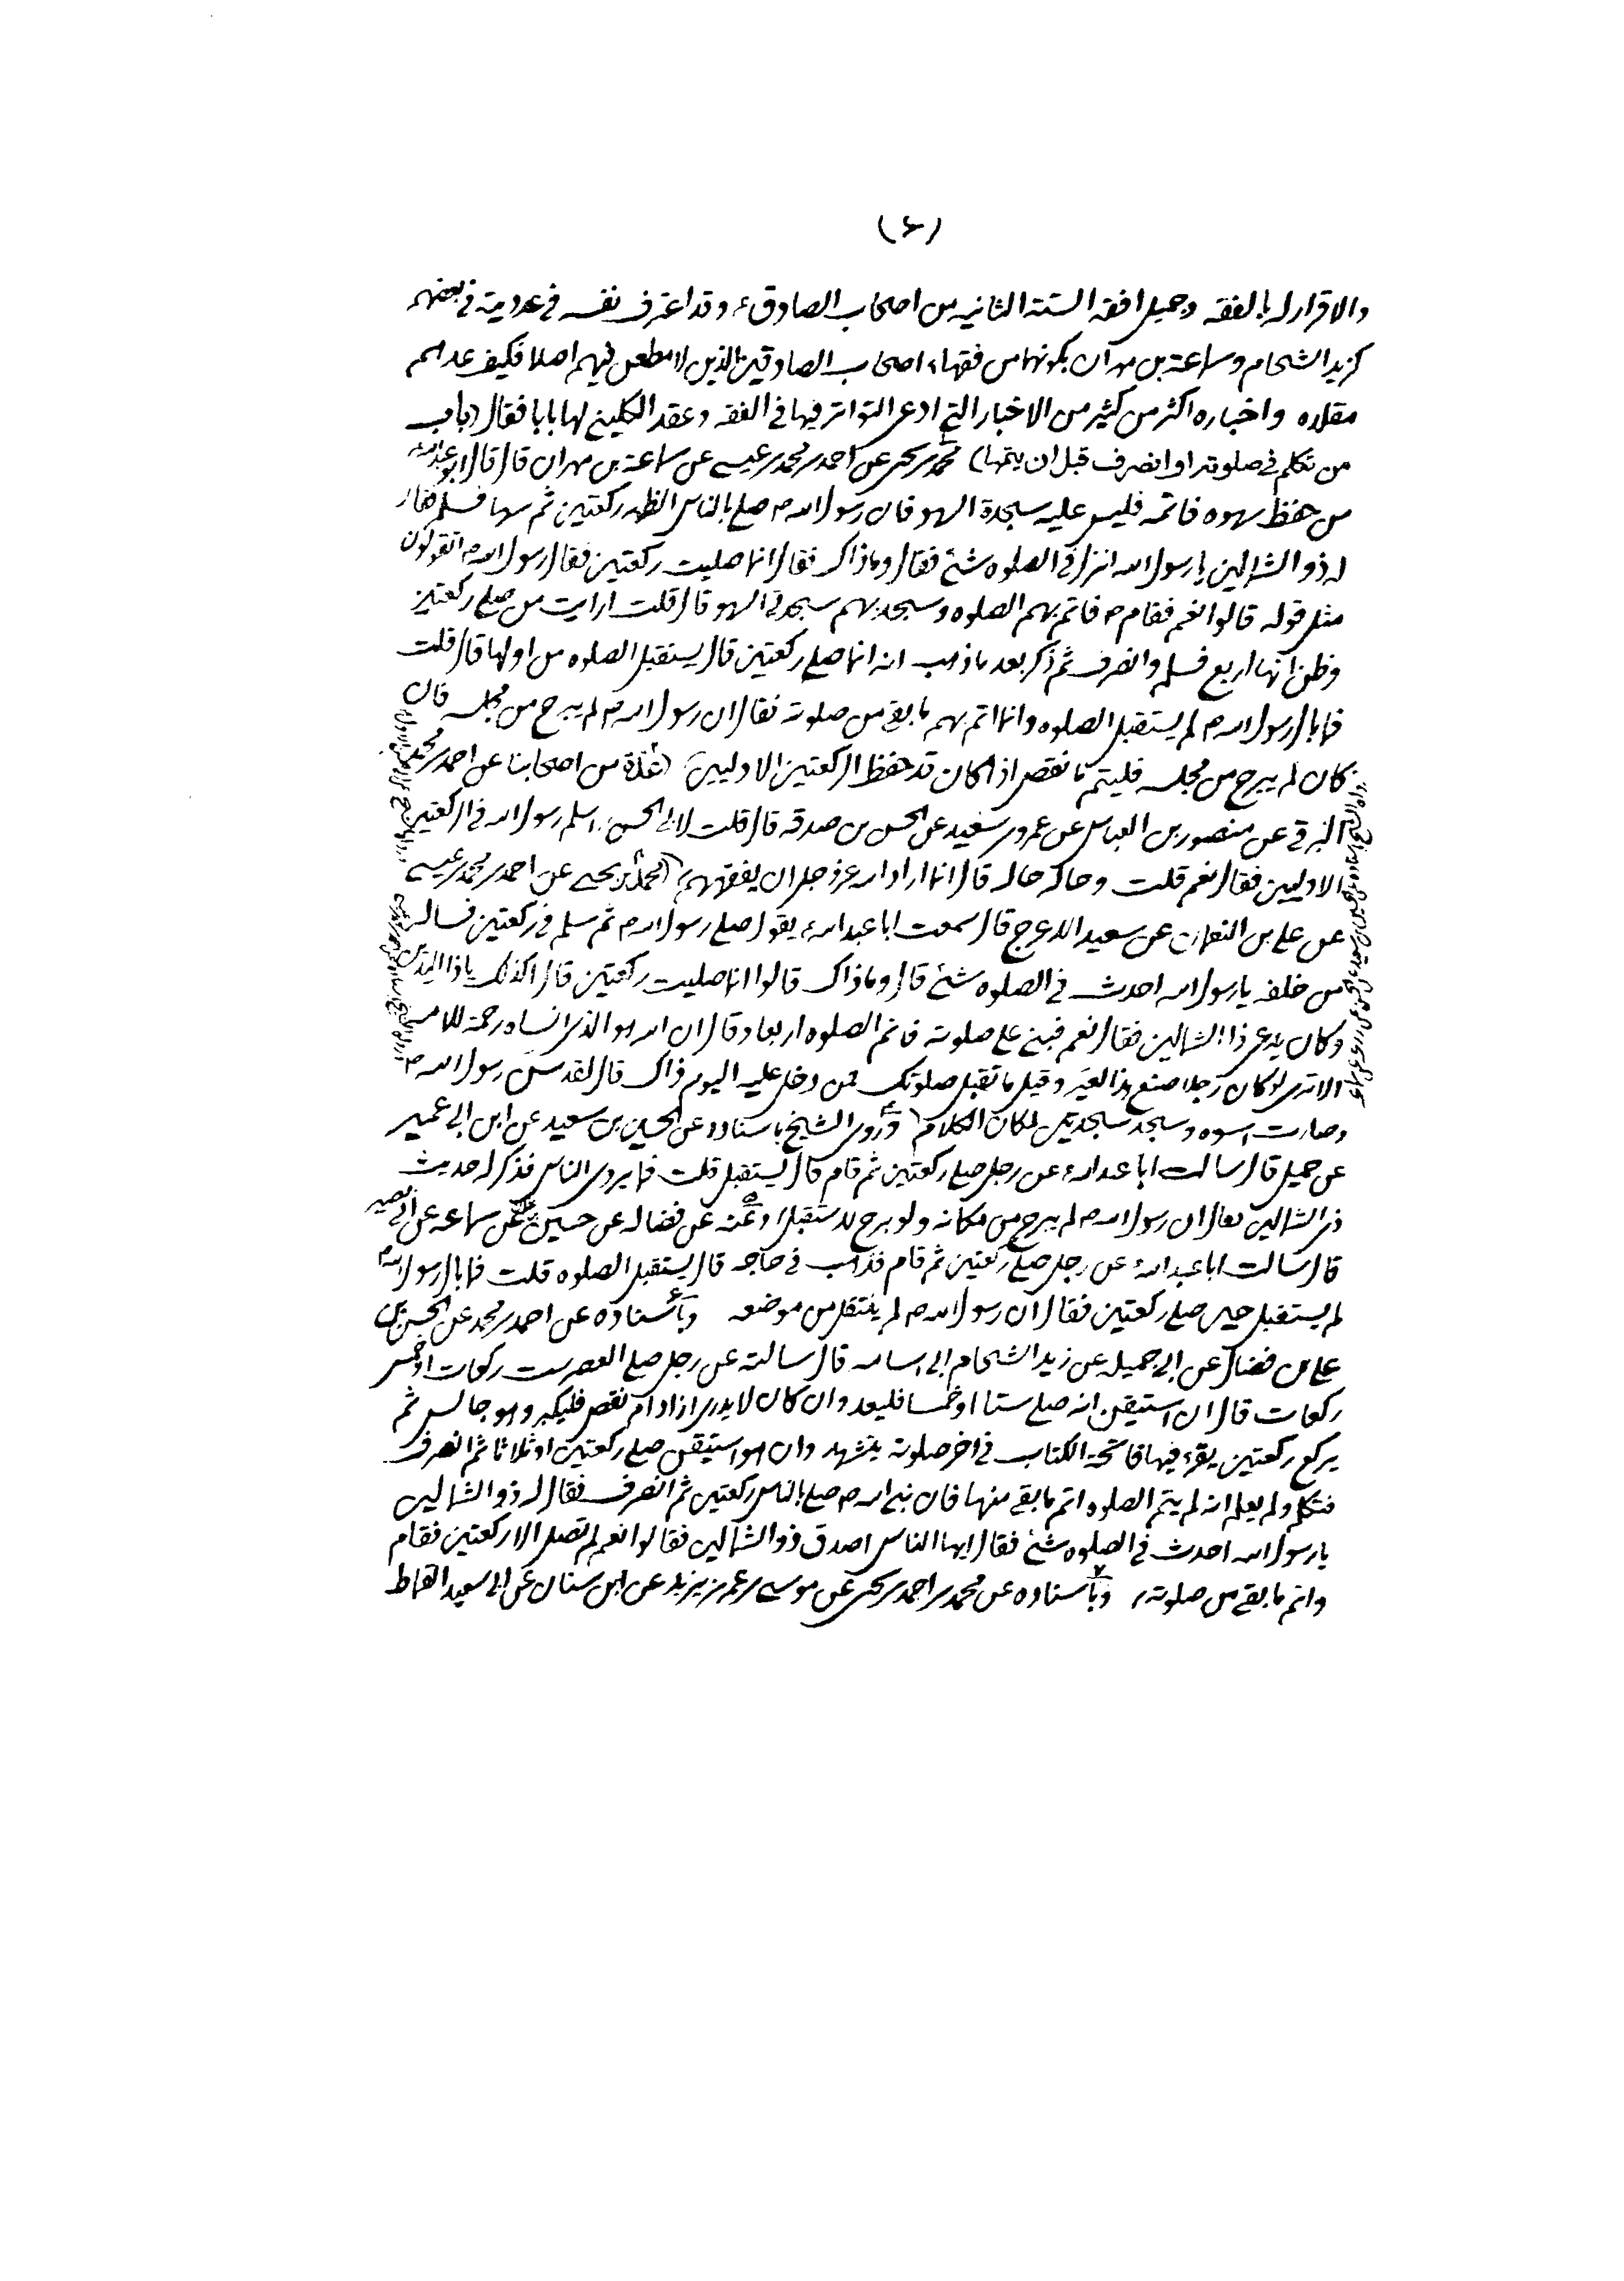 (٦)
والاقرار له بالفقه وجميل افقه الستة الثانيه من اصحاب الصادق ء وقد اعترف نفسه في عدديته في بعضهم
كزيد الشحام وساعة بن مهران بكونهما من فقهاء اصحاب الصادقين الذين لا مطعن فيهم اصلا فكيف عدهم
مقلده واخباره اكثر من كثير من الاخبار التي ادعى التواتر فيها في الفقه وعقد الكليني لها بابا فقال (باب
من تكلم في صلوته او انصرف قبل ان يتمها) محمد بن يحيى عن احمد بن محمد بن عيسى عن سماعة بن مهران قال قال ابو عبد الله
من حفظ سهوه فاتمه فليس عليه سجدة السهو فان رسول الله ص صلى بالناس الظهر ركعتين ثم سها فسلم فقال
له ذو الشمالين يا رسول الله انزل في الصلوه شئ فقال وما ذاك فقال انما صليت ركعتين فقال رسول الله ص اتقولون
مثل قوله قالوا نعم فقام ص فاتم بهم الصلوه وسجد بهم سجدتي السهو قال قلت ارايت من صلى ركعتين
وظن انها اربع فسلم وانصرف ثم ذكر بعد ما ذهب انه انما صلى ركعتين قال يستقبل الصلوه من اولها قال قلت
فما بال رسول الله ص لم يستقبل الصلوه وانما اتم بهم ما بقى من صلوته فقال ان رسول الله ص لم يبرح من مجلسه فان
كان لم يبرح من مجلسه فليتم ما نقص اذا كان قد حفظ الركعتين الاوليين (عدة من اصحابنا عن احمد بن محمد
البرقى عن منصور بن العباس عن عمرو بن سعيد عن الحسن بن صدقه قال قلت لابى الحسن ء اسلم رسول الله في الركعتين
الاوليين فقال نعم قلت وحاله حاله قال انما اراد الله عز وجل ان يفقههم (محمد بن يحيى عن احمد بن محمد بن عيسى
عن على بن النعمان عن سعيد الاعرج قال سمعت ابا عبد الله ء يقول صلى رسول الله ص ثم سلم في ركعتين فساله
من خلفه يا رسول الله احدث في الصلوه شئ قال وما ذاك قالوا انما صليت ركعتين قال اكذلك يا ذا اليدين
وكان يدعى ذا الشمالين فقال نعم فبنى على صلوته فاتم الصلوه اربعا وقال ان الله هو الذى انساه رحمة للامه
الا ترى لو كان رجلا صنع هذا لعير وقيل ما تقبل صلوتك فمن دخل عليه اليوم ذاك قال قد سن رسول الله ص
وصارت اسوه وسجد سجدتين لمكان الكلام (وروى الشيخ باسناده عن الحسين بن سعيد عن ابن ابى عمير
عن جميل قال سالت ابا عبد الله ء عن رجل صلى ركعتين ثم قام قال يستقبل قلت فما يروى الناس فذكر له حديث
ذى الشمالين فقال ان رسول الله ص لم يبرح من مكانه ولو برح لاستقبل) وعنه عن فضاله عن حسين عن سماعه عن ابى بصير
قال سالت ابا عبد الله ء عن رجل صلى ركعتين ثم قام فذهب في حاجه قال يستقبل الصلوه قلت فما بال رسول الله ص
لم يستقبل حين صلى ركعتين فقال ان رسول الله ص لم ينتقل من موضعه وباسناده عن احمد بن محمد عن الحسن بن
على بن فضال عن ابى جميله عن زيد الشحام ابى اسامه قال سالته عن رجل صلى العصر ست ركعات او خمس
ركعات قال ان استيقن انه صلى ستا او خمسا فليعد وان كان لا يدرى ازاد ام نقص فليكبر وهو جالس ثم
يركع ركعتين يقرء فيها فاتحة الكتاب في اخر صلوته يتشهد وان هو استيقن صلى ركعتين او ثلاثا ثم انصرف
فتكلم ولم يعلم انه لم يتم الصلوه اتم ما بقى منها فان نبى الله ص صلى بالناس ركعتين ثم انصرف فقال له ذو الشمالين
يا رسول الله احدث في الصلوه شئ فقال ايها الناس اصدق ذو الشمالين فقالوا نعم لم تصل الا ركعتين فقام
واتم ما بقى من صلوته ء وباسناده عن محمد بن احمد بن يحيى عن موسى بن عمر بن يزيد عن ابن سنان عن ابى سعيد القماط